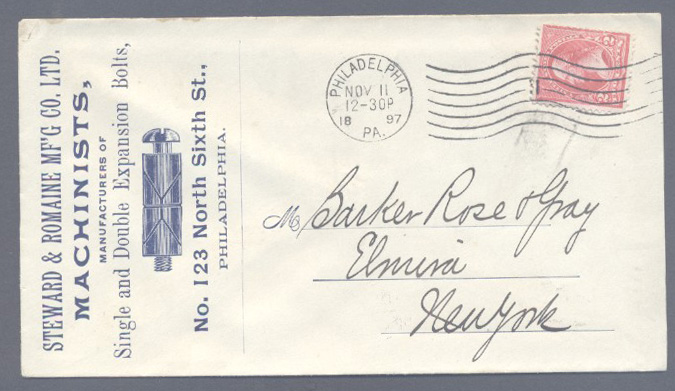 STEWARD & ROMAINE MF'G CO. LTD.
MACHINISTS,
MANUFACTURERS OF
Single and Double Expansion Bolts,
No. 123 North Sixth St.,
PHILADELPHIA.
PHILADELPHIA
NOV 11
12-30P
18 97
PA.
M Barker Rose & Gray
Elmira
New York